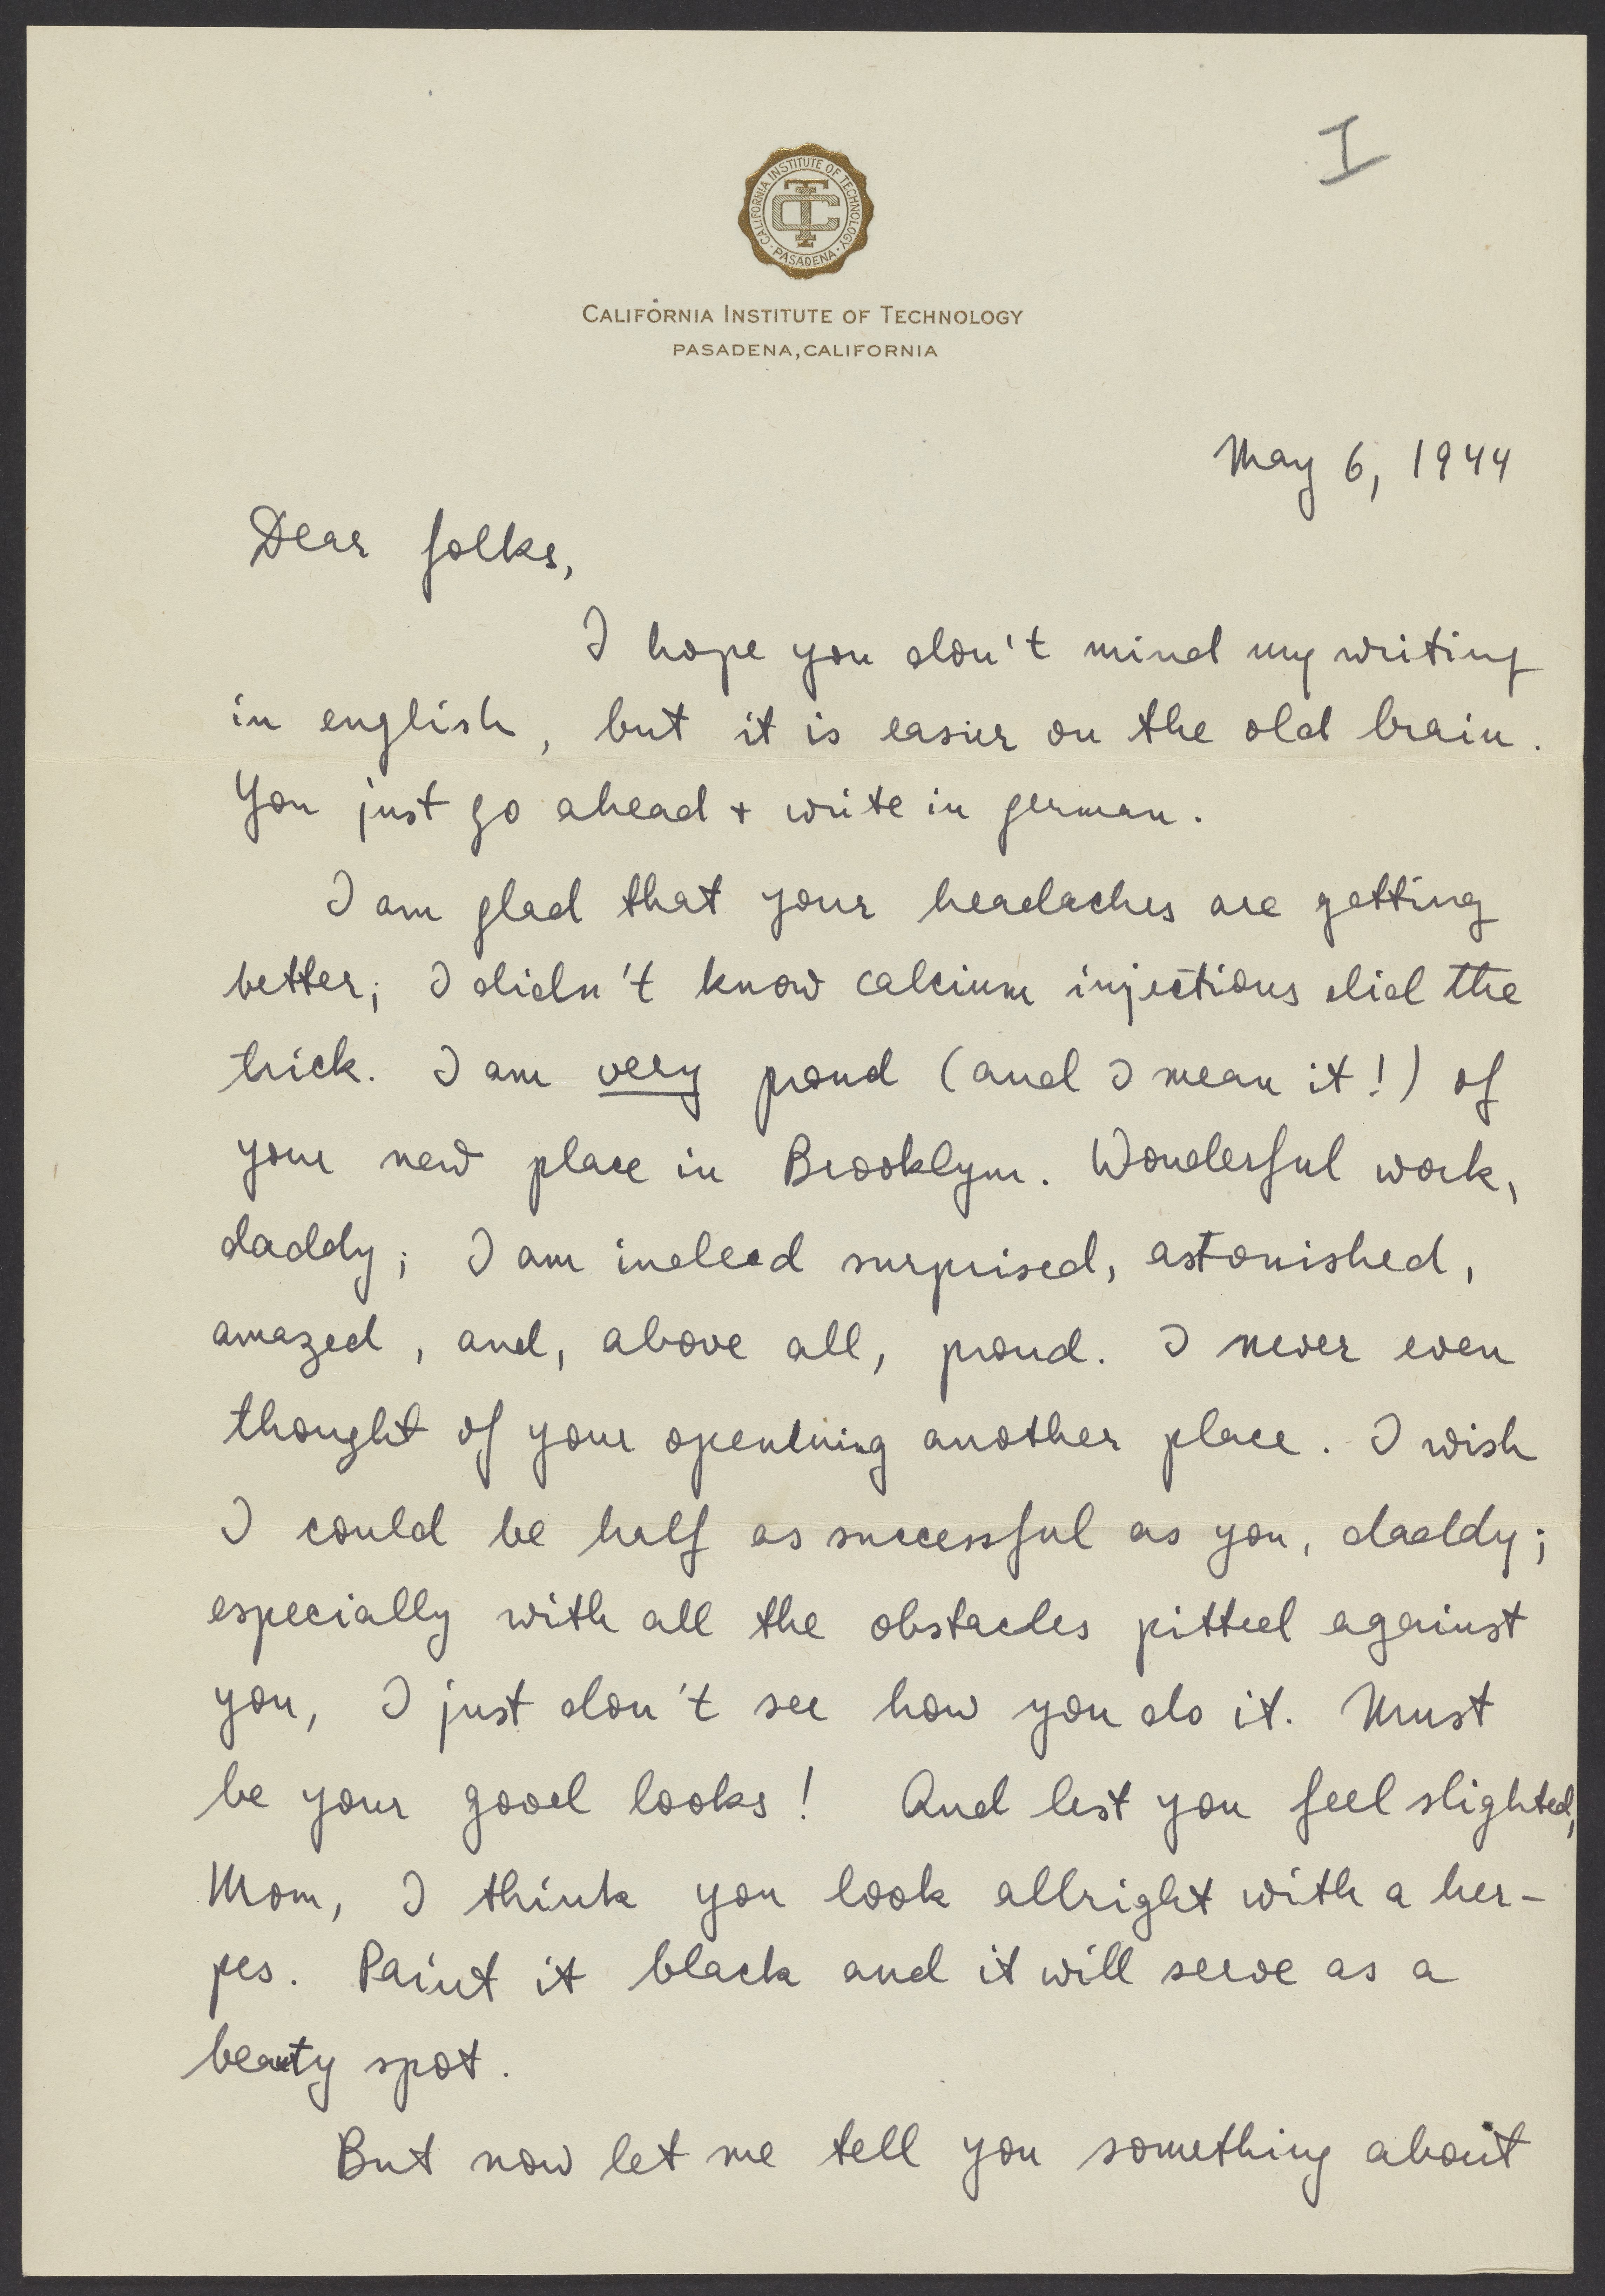 I
CALIFORNIA INSTITUTE OF TECHNOLOGY
PASADENA
TC
CALIFORNIA INSTITUTE OF TECHNOLOGY
PASADENA, CALIFORNIA
May 6, 1944
Dear folks,
I hope you don't mind my writing
in english, but it is easier on the old brain.
You just go ahead + write in german.
I am glad that your headaches are getting
better; I didn't know calcium injections did the
trick. I am very proud (and I mean it!) of
your new place in Brooklyn. Wonderful work,
daddy; I am indeed surprised, astonished,
amazed, and, above all, proud. I never even
thought of your openning another place. I wish
I could be half as successful as you, daddy;
especially with all the obstacles pitted against
you, I just don't see how you do it. Must
be your good looks! And lest you feel slighted,
Mom, I think you look allright with a her-
pes. Paint it black and it will serve as a
beauty spot.
But now let me tell you something about